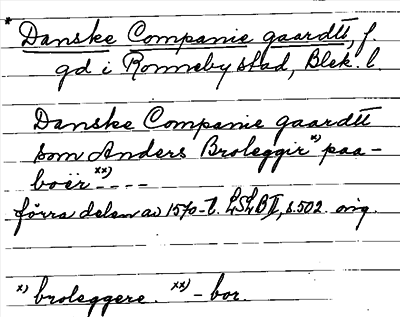 * Danske Companie gaardtt, f.
gd i Ronneby stad, Blek. l.
Danske Companie gaardtt
som Anders Broleggir x) paa-
boër xx) ----
förra delen av 1570-t. LSLB II, s. 502. orig.
x) broleggere. xx) -bor.